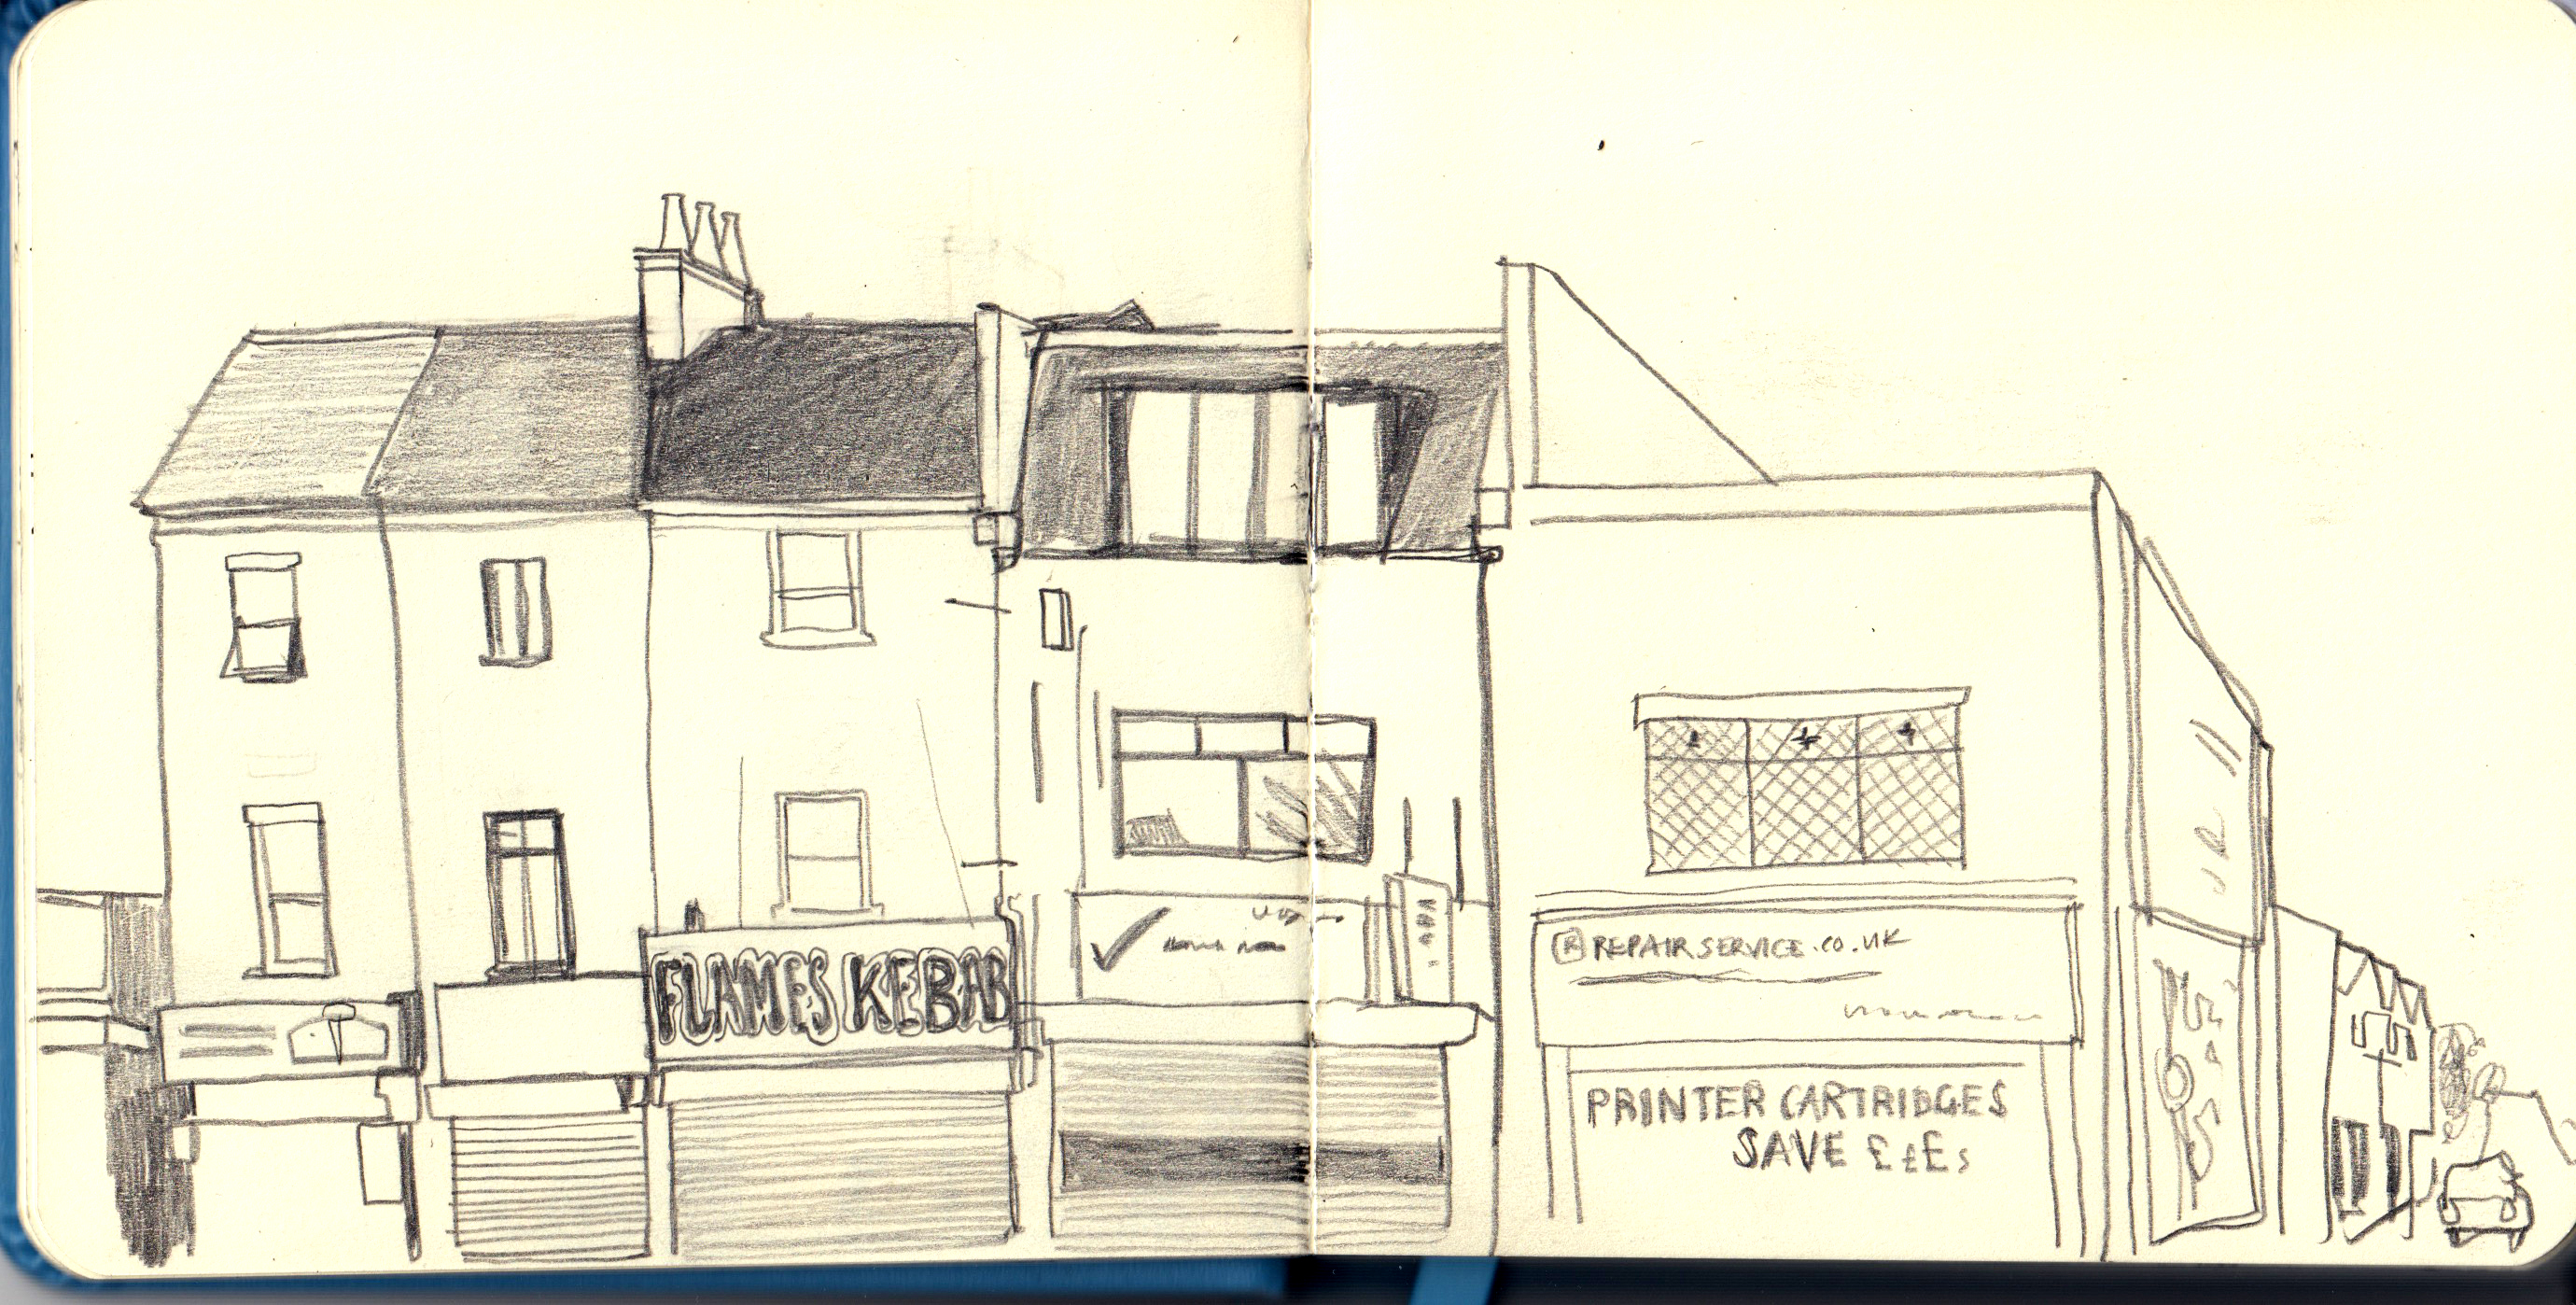 FLAMES KEBAB
® REPAIRSERVICE.CO.UK
PRINTER CARTRIDGES
SAVE £££s